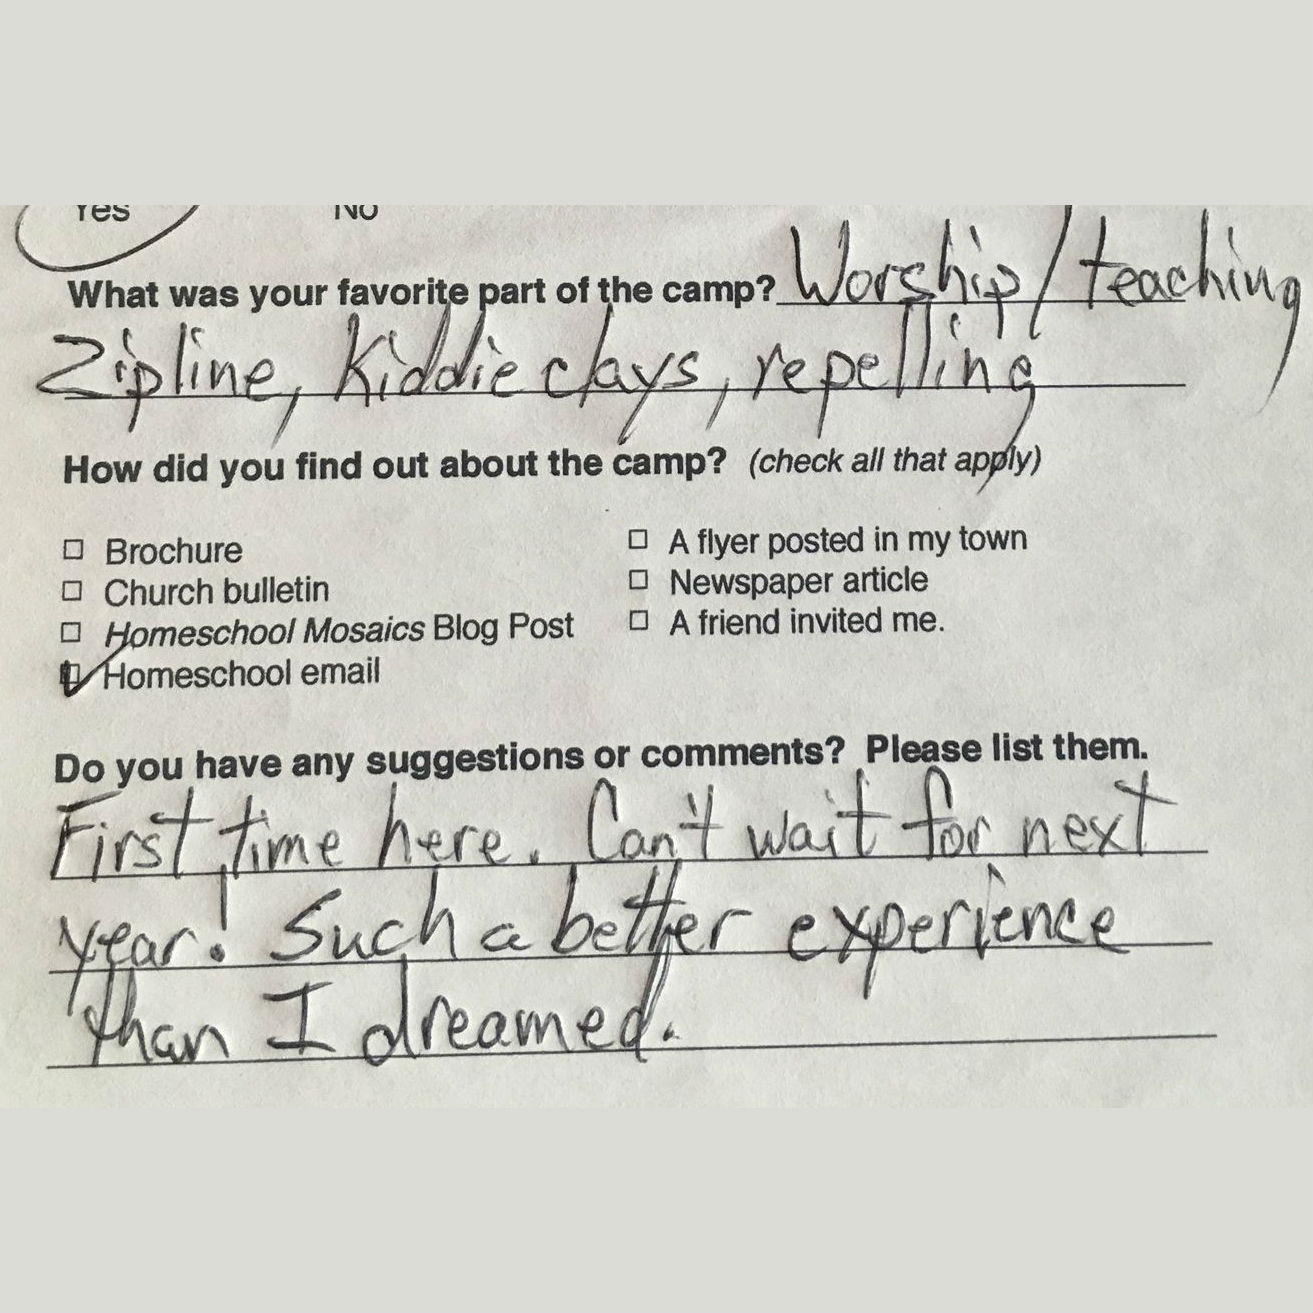 Yes No
What was your favorite part of the camp? Worship/teaching
Zipline, Kiddie clays, repelling
How did you find out about the camp? (check all that apply)
Brochure
Church bulletin
Homeschool Mosaics Blog Post
Homeschool email
A flyer posted in my town
Newspaper article
A friend invited me.
Do you have any suggestions or comments? Please list them.
First time here. Can't wait for next
year! Such a better experience
than I dreamed.